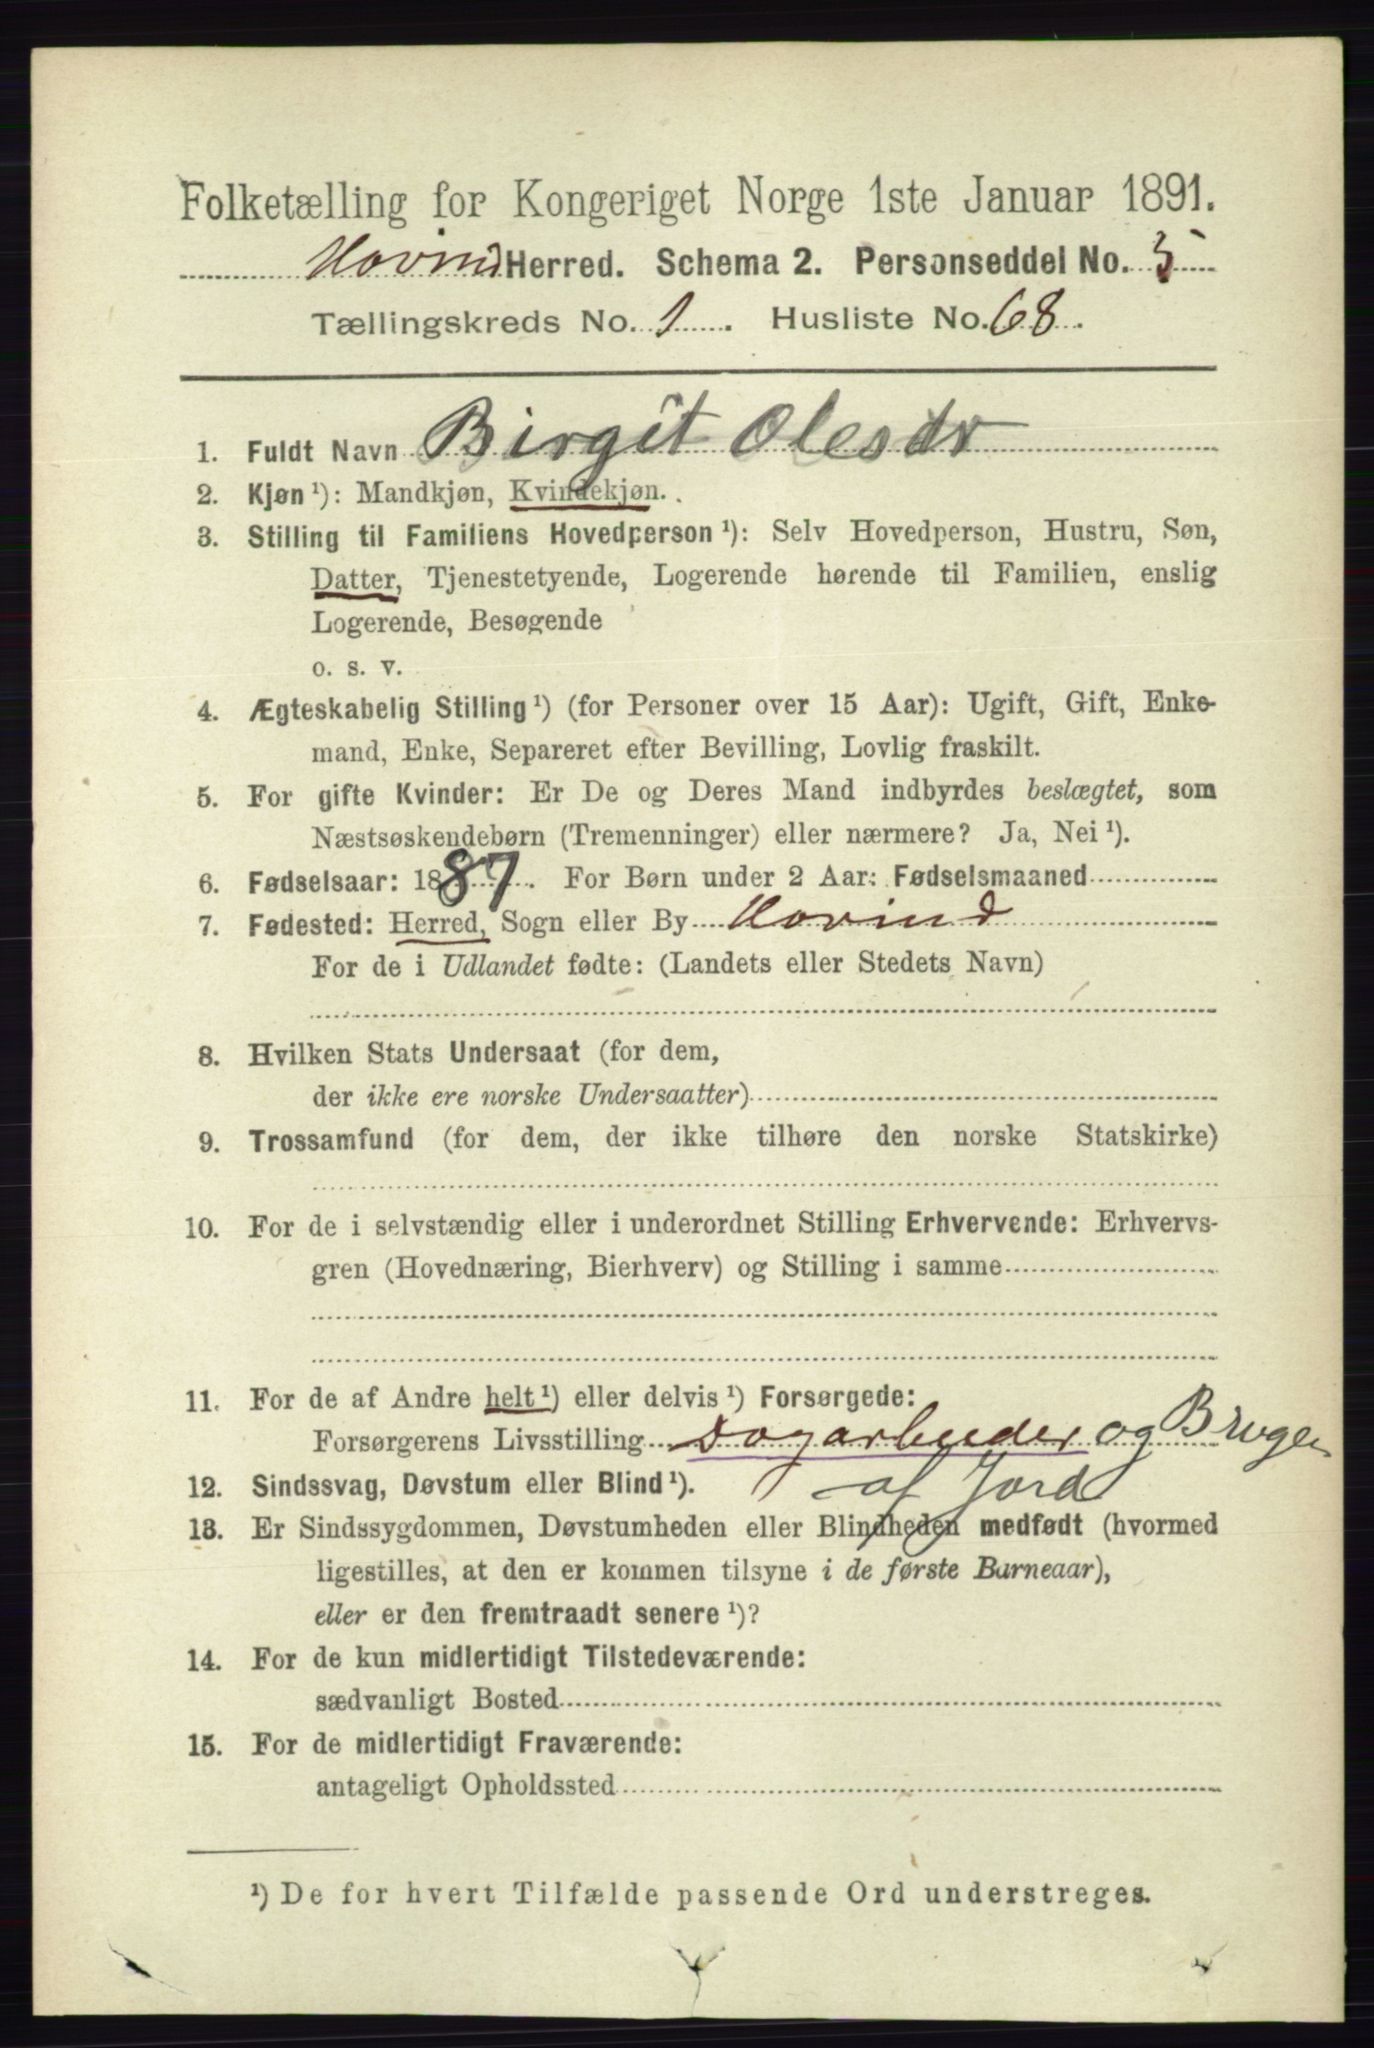 Folketælling for Kongeriget Norge 1ste Januar 1891.
Hovind Herred. Schema 2. Personseddel No. 5
Tællingskreds No. 1. Husliste No. 68.
1. Fuldt Navn Birgit Olesdr
2. Kjøn ¹): Mandkjøn, Kvindekjøn.
3. Stilling til Familiens Hovedperson ¹): Selv Hovedperson, Hustru, Søn,
Datter, Tjenestetyende, Logerende hørende til Familien, enslig
Logerende, Besøgende
o. s. v.
4. Ægteskabelig Stilling ¹) (for Personer over 15 Aar): Ugift, Gift, Enke-
mand, Enke, Separeret efter Bevilling, Lovlig fraskilt.
5. For gifte Kvinder: Er De og Deres Mand indbyrdes beslægtet, som
Næstsøskendebørn (Tremenninger) eller nærmere? Ja, Nei ¹).
6. Fødselsaar: 1887. For Børn under 2 Aar: Fødselsmaaned
7. Fødested: Herred, Sogn eller By Hovind
For de i Udlandet fødte: (Landets eller Stedets Navn)
8. Hvilken Stats Undersaat (for dem,
der ikke ere norske Undersaatter)
9. Trossamfund (for dem, der ikke tilhøre den norske Statskirke)
10. For de i selvstændig eller i underordnet Stilling Erhvervende: Erhvervs-
gren (Hovednæring, Bierhverv) og Stilling i samme
11. For de af Andre helt ¹) eller delvis ¹) Forsørgede:
Forsørgerens Livsstilling Dagarbeider og Bruger
af Jord
12. Sindssvag, Døvstum eller Blind ¹).
13. Er Sindssygdommen, Døvstumheden eller Blindheden medfødt (hvormed
ligestilles, at den er kommen tilsyne i de første Barneaar),
eller er den fremtraadt senere ¹)?
14. For de kun midlertidigt Tilstedeværende:
sædvanligt Bosted
15. For de midlertidigt Fraværende:
antageligt Opholdssted
¹) De for hvert Tilfælde passende Ord understreges.